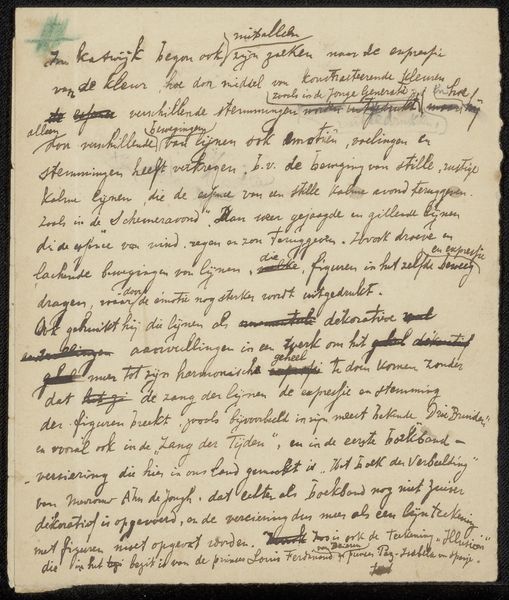 misschien
In Katwijk begon ook zijn zoeken naar de expressie
van de kleur hoe door middel van kontrasteerende kleuren
zooals in de Jonge Generatie
verschillende stemmingen worden uitgedrukt hoe hij
alleen
door verschillende bewegingen van lijnen ook emotiën, voelingen en
stemmingen heeft verkregen. b.v. de beweging van stille, rustige
kalme lijnen, die de van een stille kalme avond teruggeven.
zooals in de Schemeravond". Dan weer gejaagde en gillende lijnen
di de van wind, regen en zon teruggeven. Zoook droeve en
en expressie
lachende bewegingen van lijnen, die figuren in het zelfde beweeg
dragen, waardoor de emotie nog sterker wordt uitgedrukt.
Ook gebruikt hij die lijnen als dekoratieve
aanvullingen in een werk om het
meer tot zijn harmonische geheel te doen komen zonder
dat de zang der lijnen de expressie en stemming
der figuren breekt, zooals bijvoorbeeld in zijn meest bekende Drie Bruiden"
en vooral ook in de "Zang der Tijden", en in de eerste boekband-
versiering die hier in ons land gemaakt is "Het boek der Verbeelding"
van Mevrouw de Jongh. dat echter als boekband nog niet zuiver
dekoratief is opgevoerd, en de versiering dus meer als een lijnteekening
met figuren moet opgevat worden. is ook de teekening "Illusion"
die in het bezit is van de prinses Louis Ferdinand van Beieren Paz, Isabela van Spanje.